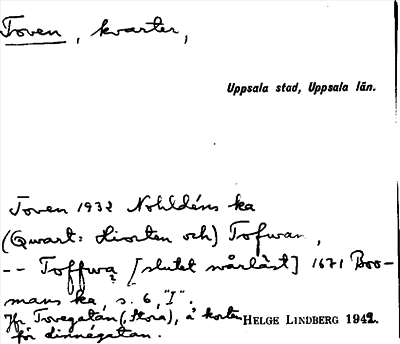 Toven, kvarter,
Uppsala stad, Uppsala län.
Toven 1932 Nohldéns ka
(Qwart: Hiorten och) Tofwan,
-- Toffwa? [slutet svårläst] 1671 Boo-
mans ka, s. 6, "I".
Jfr Tovegatan (, Stora), å kartan
för dinnégatan.
HELGE LINDBERG 1942.